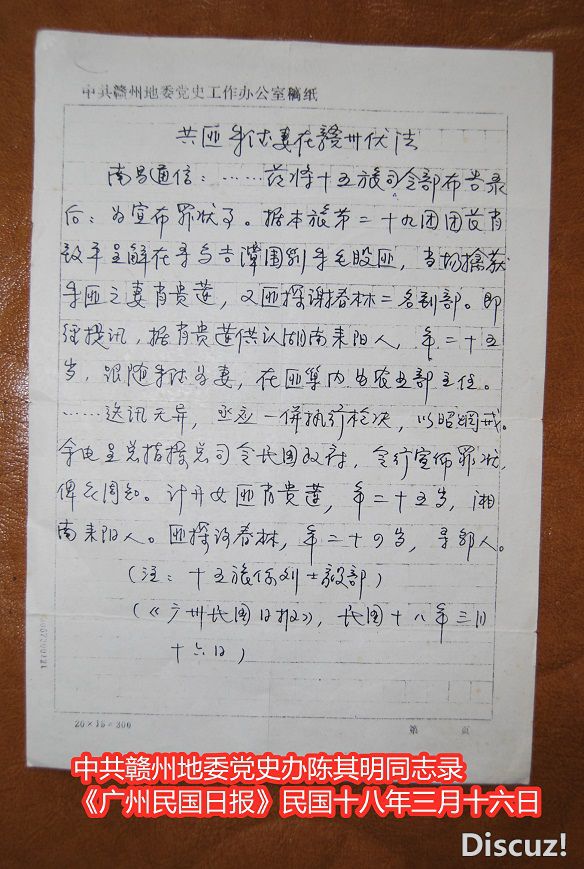 中共赣州地委党史工作办公室稿纸
共匪 妻在赣州伏法
南昌通信：……兹将十五旅司令部布告录
后：为宣布罪状事。据本旅第二十九团团长肖
致平呈解在寻乌吉潭围剿 毛股匪，当场擒获
匪之妻肖贵莲，又匪探谢春林二名到部。即
经提讯，据肖贵莲供认湖南耒阳人，年二十五
岁，跟随 为妻，在匪巢内当农运部主任。
……迭讯无异，亟应一併执行枪决，以昭炯戒。
余电呈总指挥总司令民国政府，合行宣佈罪状，
俾众周知。计开女匪肖贵莲，年二十五岁，湘
南耒阳人。匪探谢春林，年二十四岁，寻邬人。
（注：十五旅系刘士毅部）
（《广州民国日报》，民国十八年三月
十六日）
20×15=300
第 页
中共赣州地委党史办陈其明同志录
《广州民国日报》民国十八年三月十六日
Discuz!